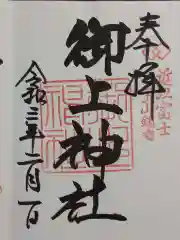 奉拝
近江富士
御上神社
令和三年二月一日